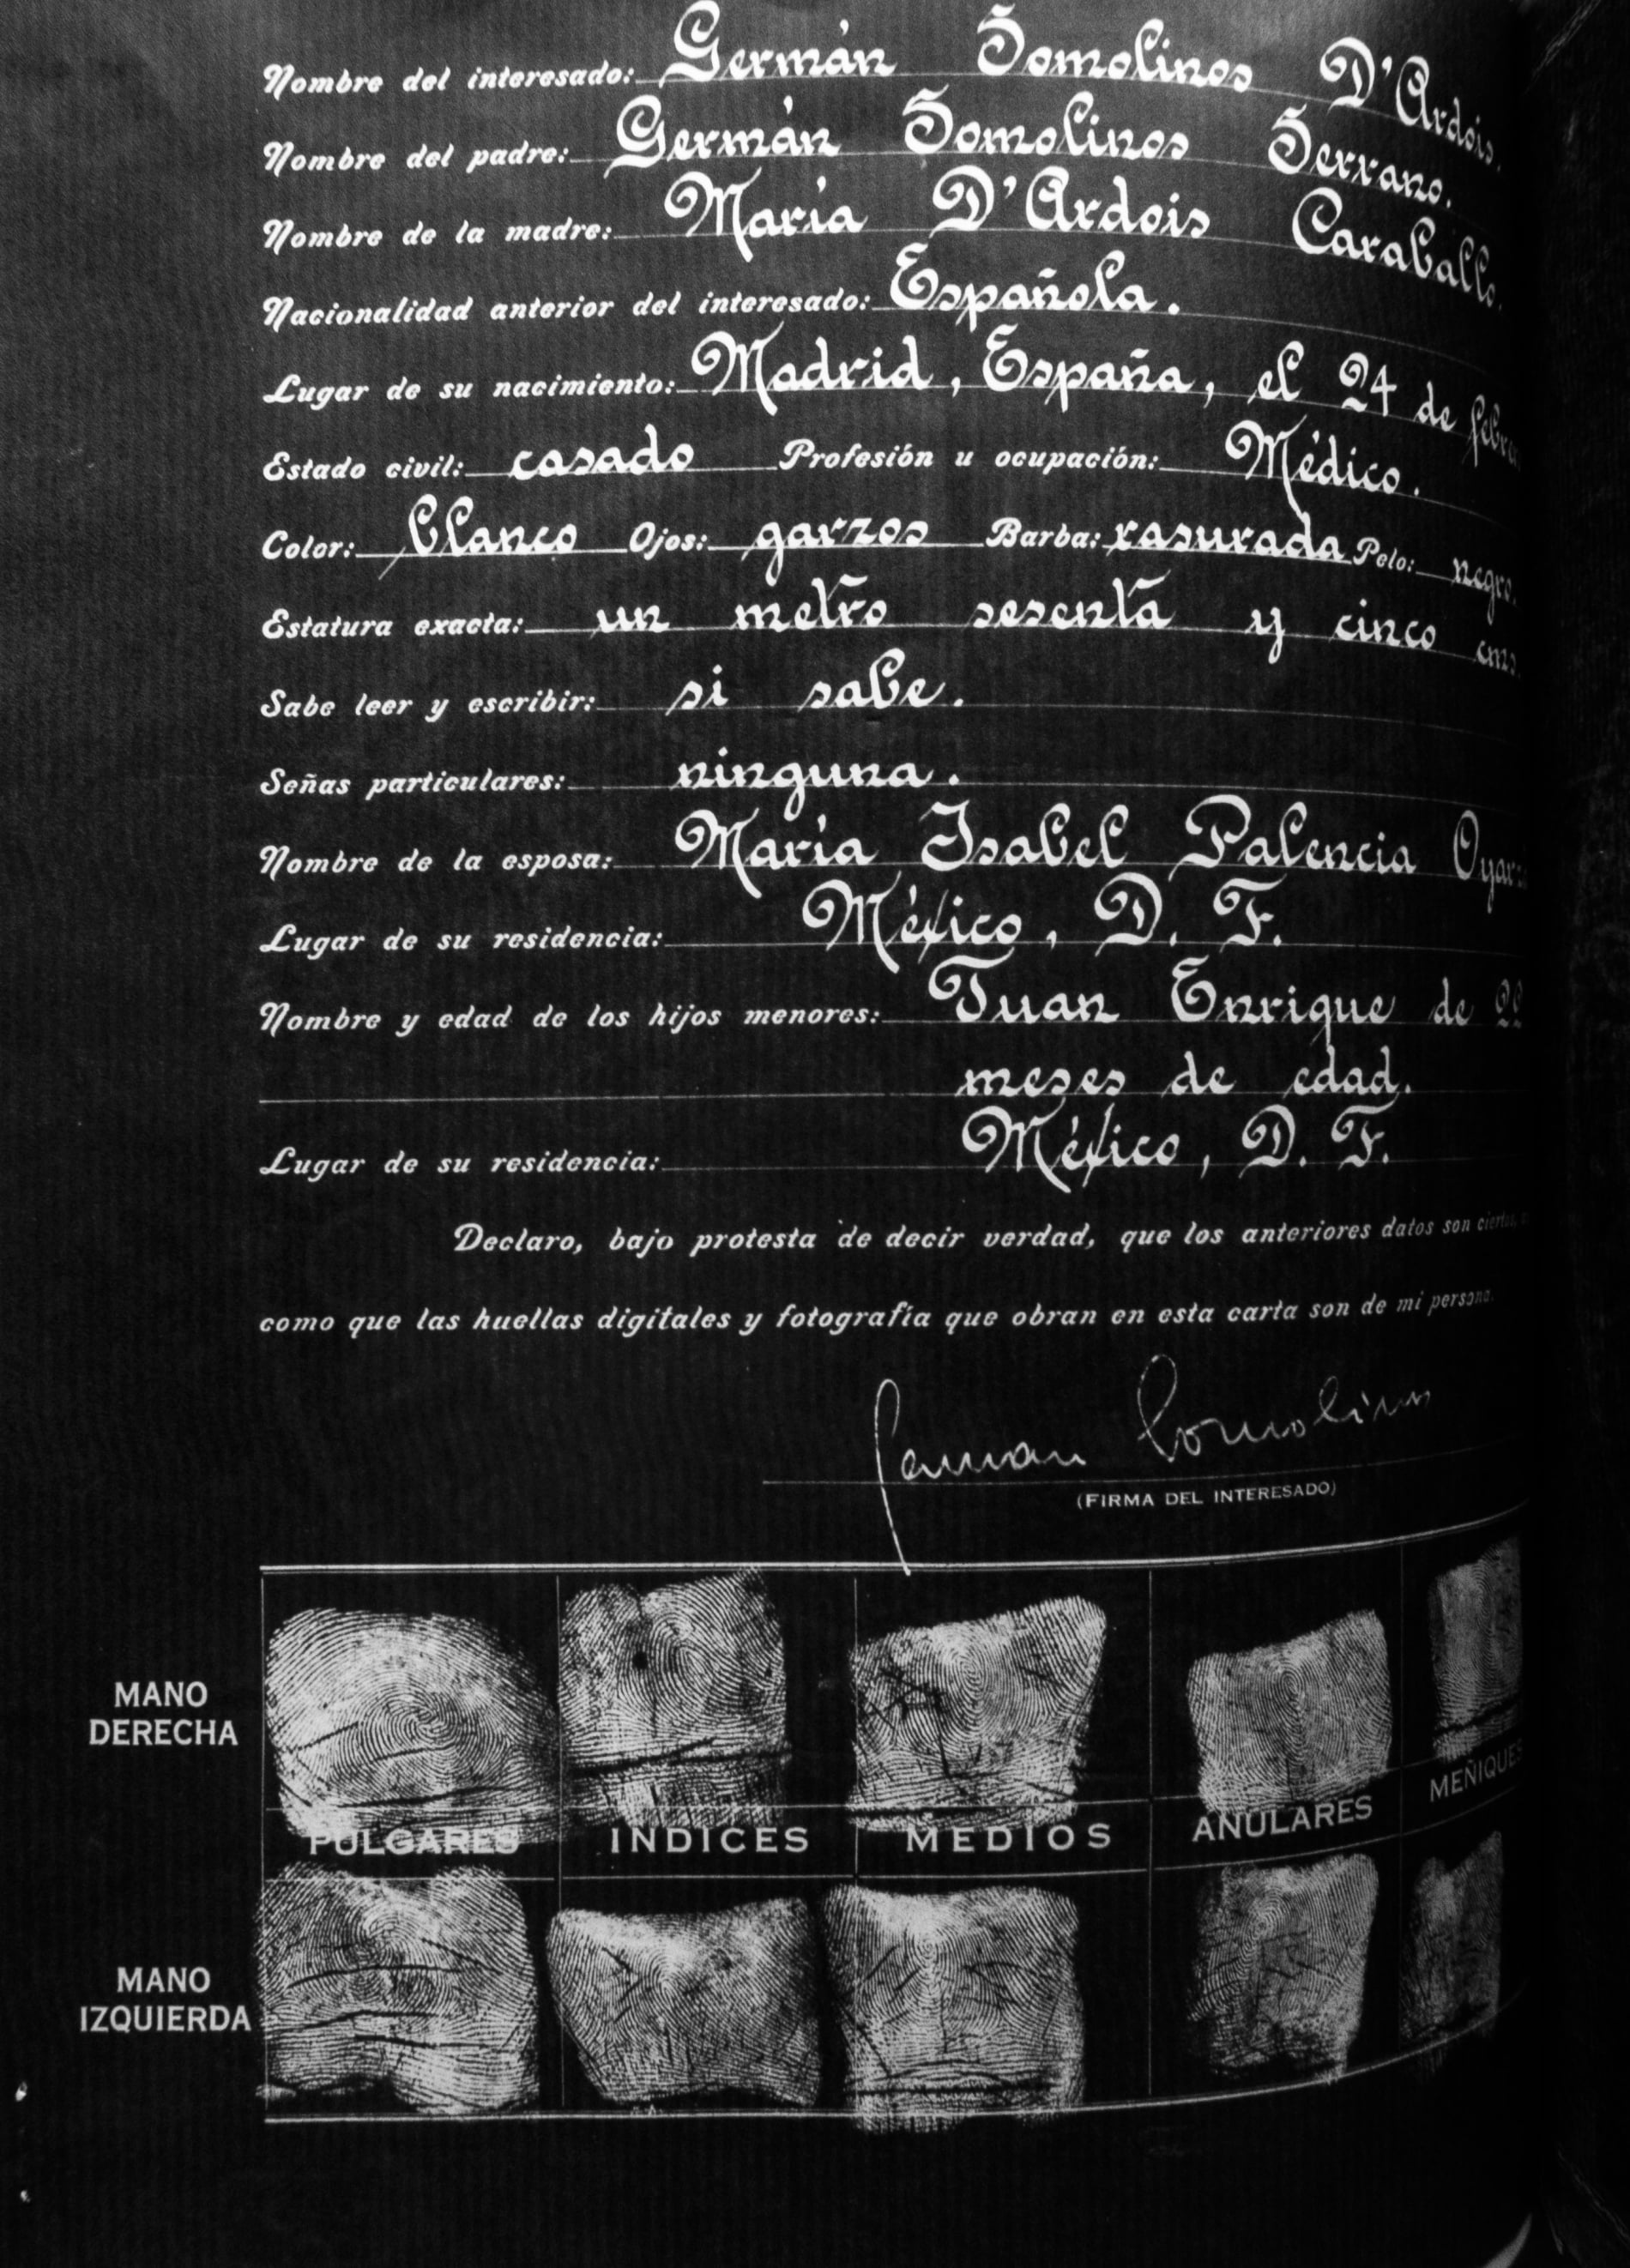 Nombre del interesado: Germán Somolinos D'Ardois.
Nombre del padre: Germán Somolinos Serrano.
Nombre de la madre: María D'Ardois Caraballo.
Nacionalidad anterior del interesado: Española.
Lugar de su nacimiento: Madrid, España, el 24 de
Estado civil: casado Profesión u ocupación: Médico.
Color: blanco Ojos: garzos Barba: rasurada Pelo: negro.
Estatura exacta: un metro sesenta y cinco cms.
Sabe leer y escribir: si sabe.
Señas particulares: ninguna.
Nombre de la esposa: María Isabel Palencia
Lugar de su residencia: México, D. F.
Nombre y edad de los hijos menores: Juan Enrique de
meses de edad.
Lugar de su residencia: México, D. F.
Declaro, bajo protesta de decir verdad, que los anteriores datos son ciertos,
como que las huellas digitales y fotografía que obran en esta carta son de mi persona.
German Somolinos
(FIRMA DEL INTERESADO)
MANO
DERECHA
PULGARES INDICES MEDIOS ANULARES MEÑIQUES
MANO
IZQUIERDA